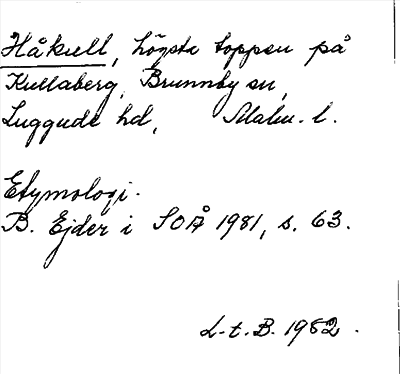 Håkull, högsta toppen på
Kullaberg, Brunnby sn,
Luggude hd, Malm. l.
Etymologi.
B. Ejder i SOÅ 1981, s. 63.
L-t. B. 1982.